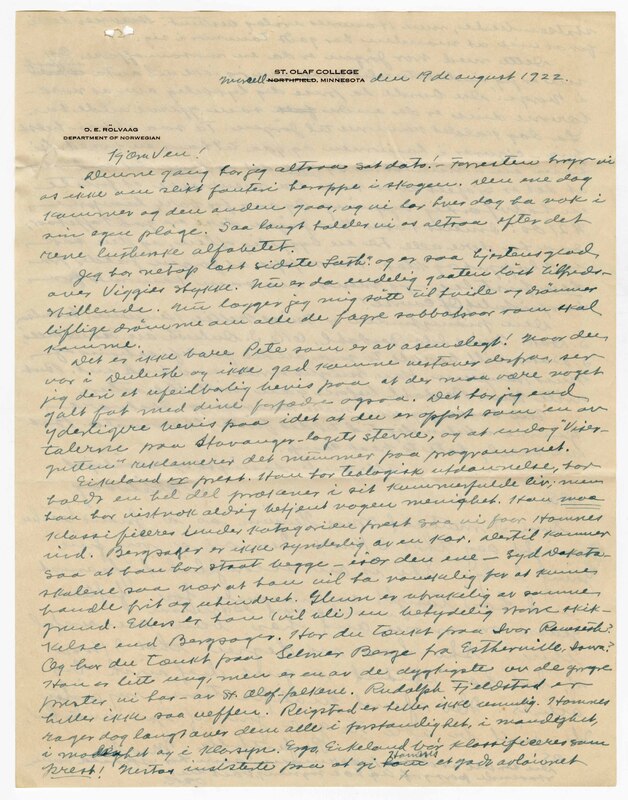 ST. OLAF COLLEGE
Marcell NORTHFIELD, MINNESOTA den 19de august 1922.
O. E. RÖLVAAG
DEPARTMENT OF NORWEGIAN
Kjære Ven!
Denne gang har jeg altsaa sat dato! - Forresten bryr vi
os ikke om slikt fanteri heroppe i skogen. Den ene dag
kommer og den anden gaar, og vi lar hver dag ha nok i
sin egen plage. Saa langt holder vi os altsaa efter det
rene lutherske alfabetet.
Jeg har netop læst sidste "Luth." og er saa hjertensglad
over Viggies stykke. Nu er da endelig gaaten løst tilfreds-
stillende. Nu lægger jeg mig søtt til hvile og drømmer
liflige drømme om alle de fagre sabbataar som skal
komme.
Det er ikke bare Pete som er av asenslegt! Naar du
var i Duluth og ikke gad komme vestover derfra, ser
jeg deri et ufeilbarlig bevis paa at der maa være noget
galt fat med dine forfædre ogsaa. Det har jeg end
yderligere bevis paa idet at du er opført som en av
talerne paa Stavanger-lagets stevne, og at endog "Visergutten"
reklamerer det nummer paa programmet.
Eikeland er prest. Han har teologisk utdannelse, har
holdt en hel del prækener i sit kummerfulde liv; men
han har vistnok aldrig betjent nogen menighet. Han maa
klassificeres under katagorien prest saa vi faar Hamnes
ind. Bergsaker er ikke synderlig av en kar. Dertil kommer
saa at han har staat begge - især den ene - Syd Dakota-
skolene saa nær at han vil ha vanskelig for at kunne
handle frit og uhindret. Glenn er ubrukelig av samme
grund. Ellers er han (vil vli) en betydelig større skik-
kelse end Bergsager. Har du tænkt paa Ivor Ramseth?
Og har du tænkt paa Selmer Berge fra Estherville, Iowa?
Han er litt ung, men er en av de dygtigste av de yngre
prester vi har - av St. Olaf-folkene. Rudolph Fjeldstad er
heller ikke saa ueffen. Reigstad er heller ikke Hamnes
rager dog langt over dem alle i forstandighet, i mandighet,
i modighet og i klarsyn. Ergo, Eikeland bør klassificeres som
prest! Nestos insisterte paa at gi Hamnes et godt avlønnet